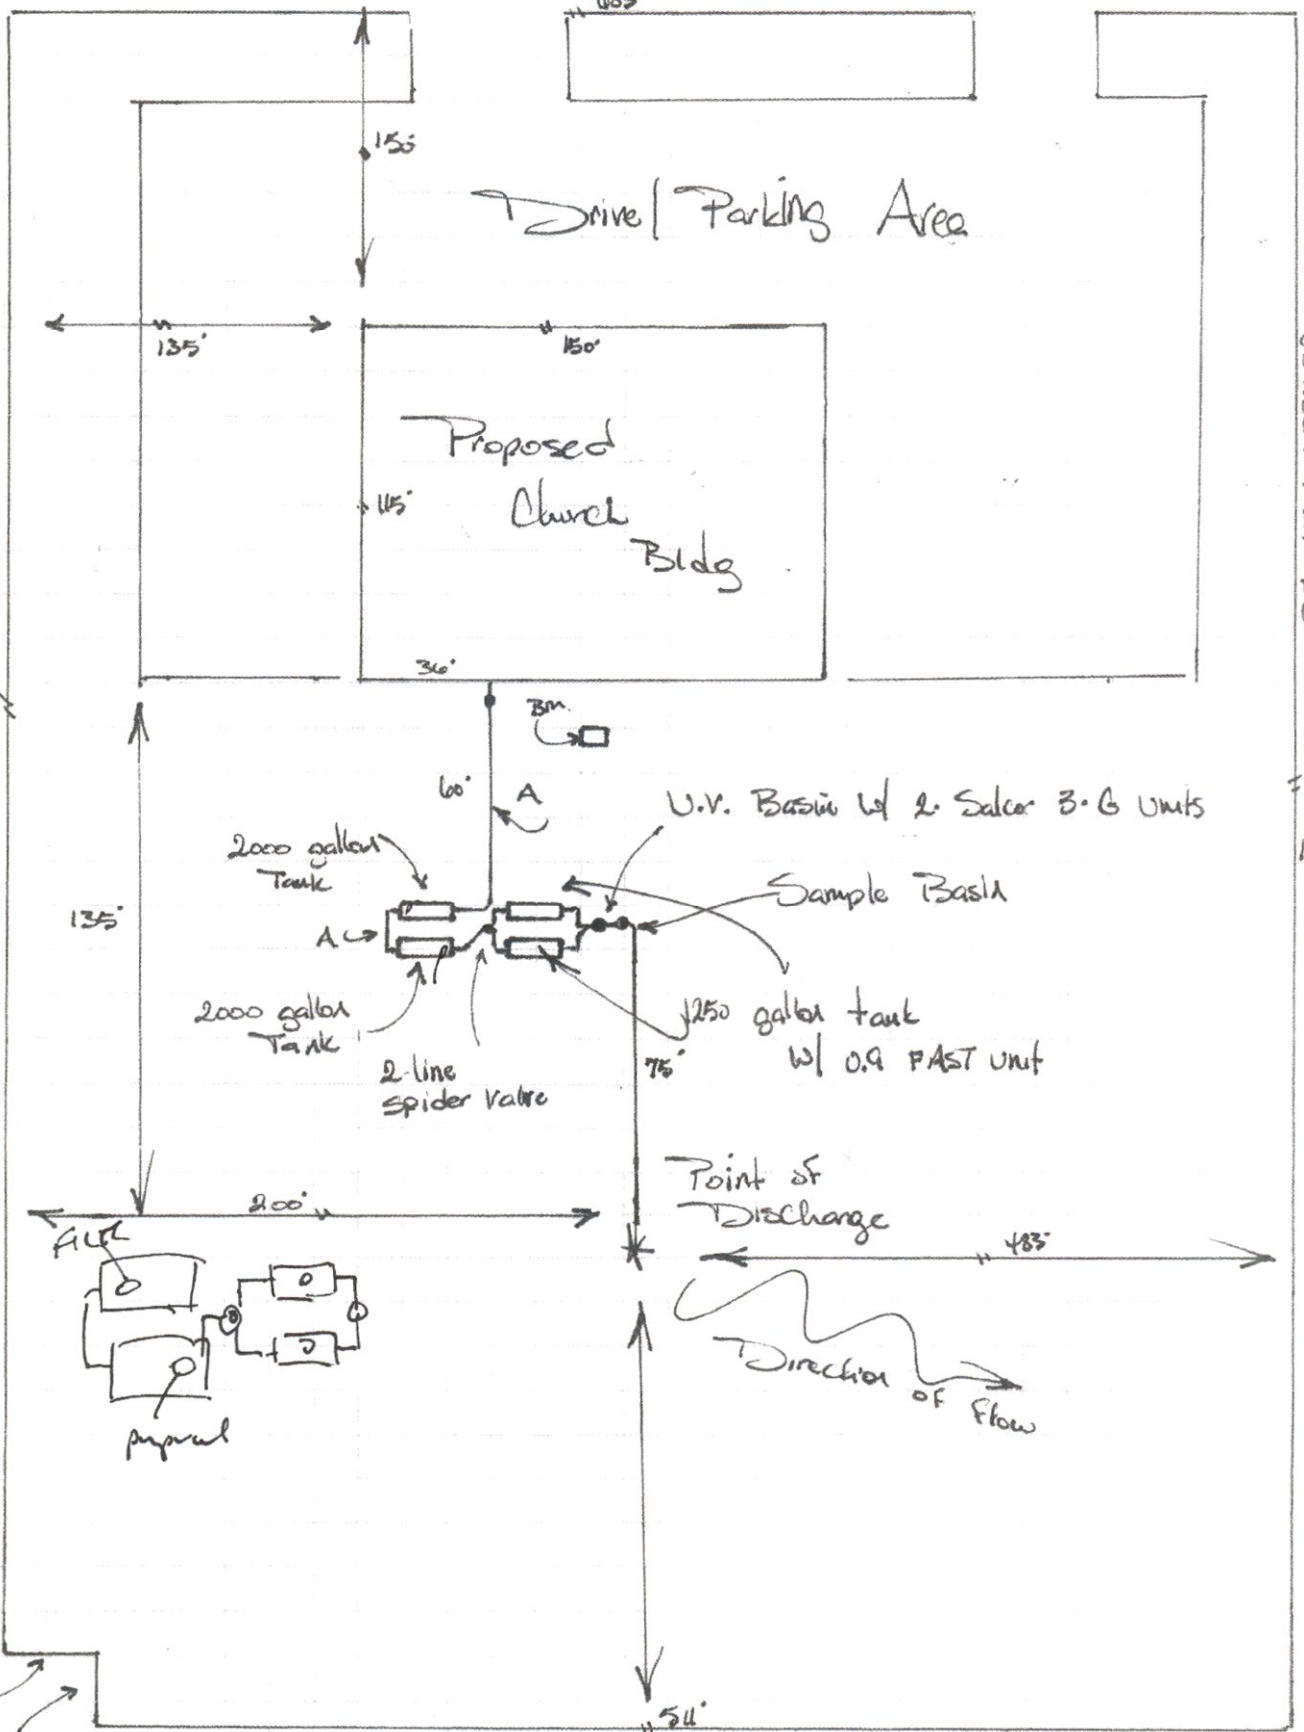 150'
Drive/ Parking Area
135'
150'
Proposed
Church
Bldg
115'
36'
Bm.
60'
A
U.V. Basin w/ 2. Salcor 3.G units
2000 gallon
Tank
Sample Basin
135'
A
2000 gallon
Tank
1250 gallon tank
w/ 0.9 FAST unit
75'
2-line
spider valve
Point of
Discharge
200'
483'
Direction
of Flow
511'